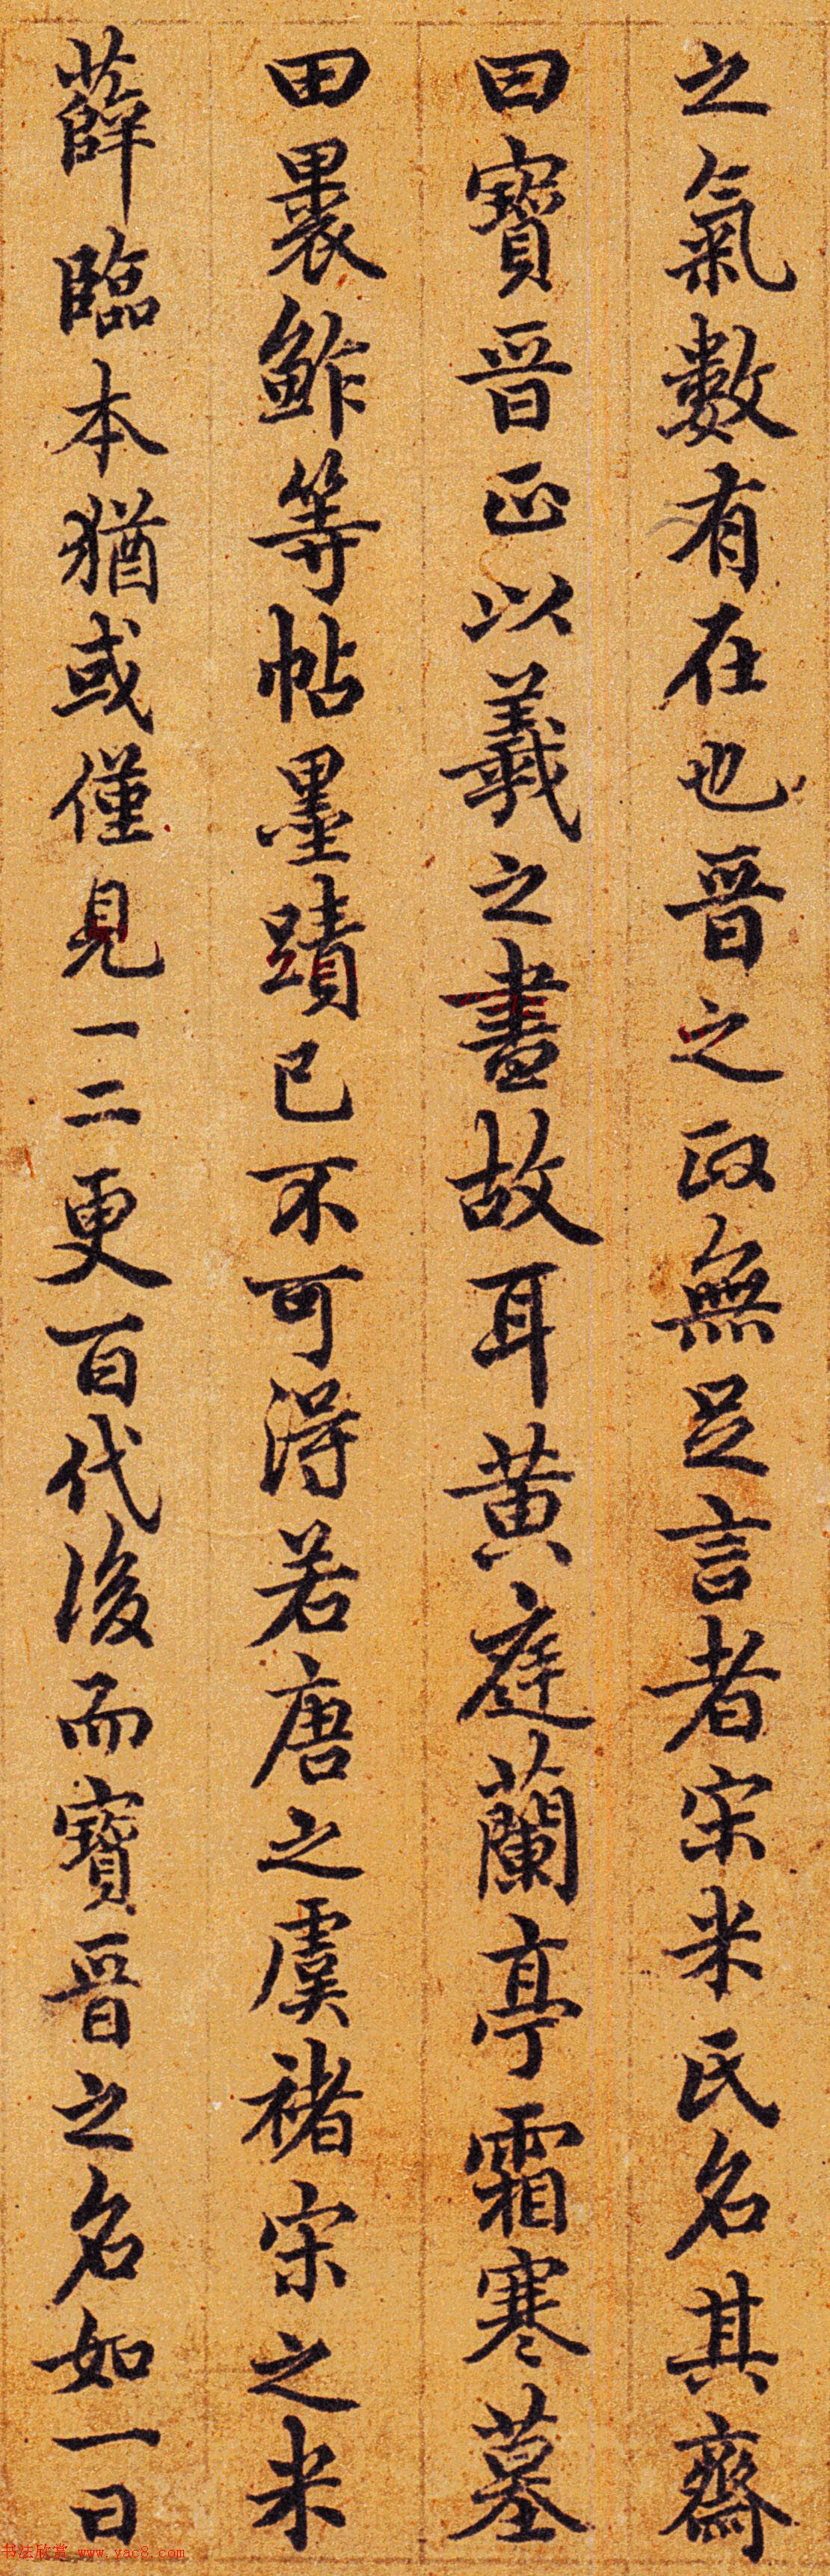 之氣數有在也晉之政無足言者宋米氏名其齋
曰寶晉正以羲之書故耳黄庭蘭亭霜寒墓
田裹鮓等帖墨蹟已不可得若唐之虞褚宋之米
薛臨本猶或僅見一二更百代後而寶晉之名如一日
书法欣赏 www.yac8.com